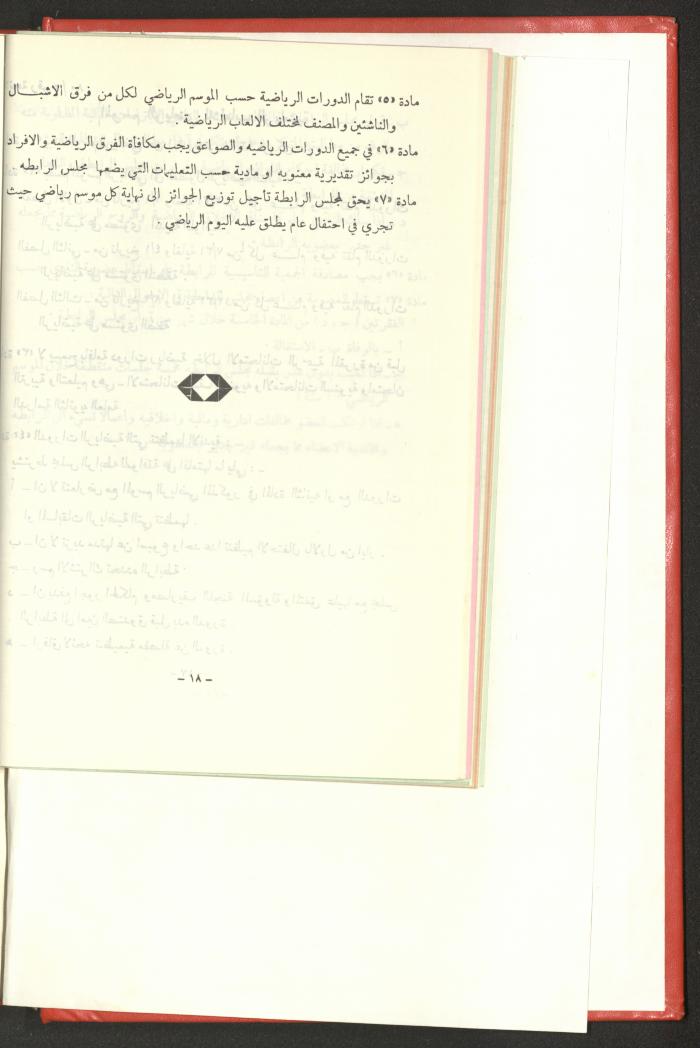 مادة «٥» تقام الدورات الرياضية حسب الموسم الرياضي لكل من فرق الاشبــال
والناشئين والمصنف لمختلف الالعاب الرياضية .
مادة «٦» في جميع الدورات الرياضيه والصواعق يجب مكافأة الفرق الرياضية والافراد
بجوائز تقديرية معنويه او مادية حسب التعليمات التي يضعها مجلس الرابطه .
مادة «٧» يحق لمجلس الرابطة تأجيل توزيع الجوائز الى نهاية كل موسم رياضي حيث
تجري في احتفال عام يطلق عليه اليوم الرياضي .
– ١٨ –